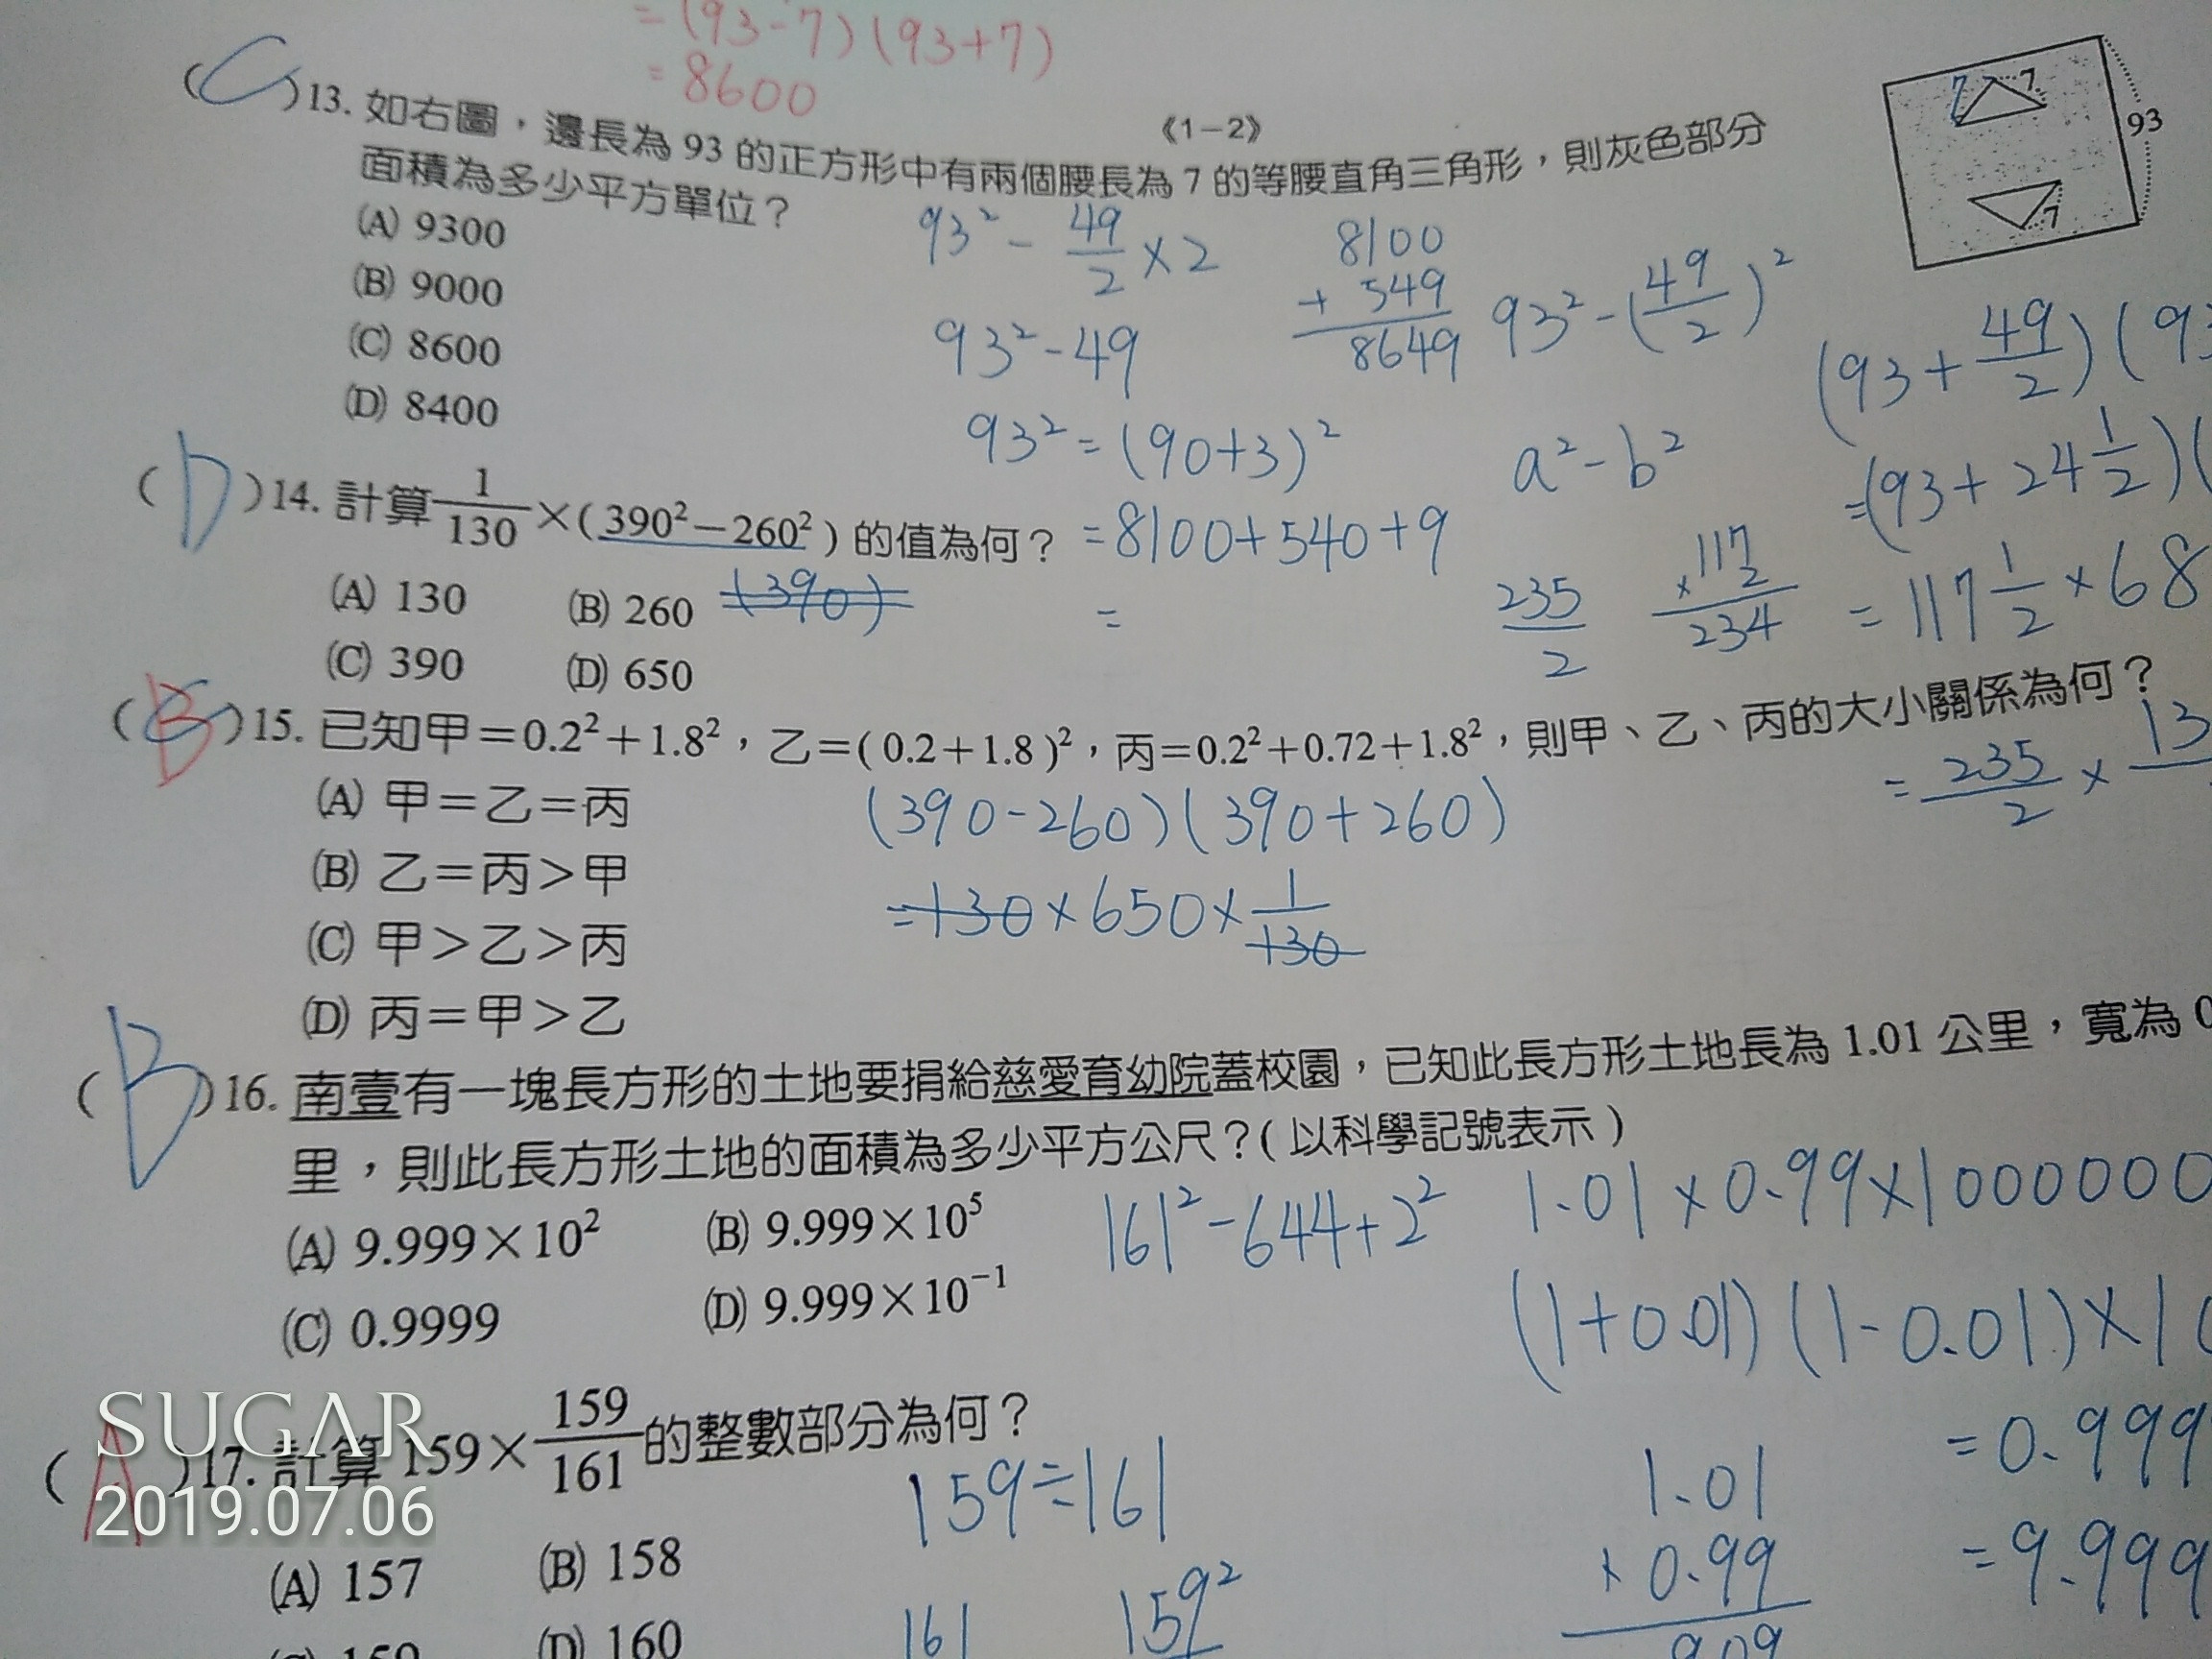 =(93-7)(93+7)
=8600
(C)13. 如右圖，邊長為 93 的正方形中有兩個腰長為 7 的等腰直角三角形，則灰色部分
《1－2》
面積為多少平方單位？
(A) 9300
(B) 9000
(C) 8600
(D) 8400
7
7
93
7
93² - 49/2 ×2
93²-49
8100
+ 549
8649
93²-(49/2)²
(93+49/2)(93
93²=(90+3)²
=8100+540+9
=
a²-b²
=(93+24 1/2)(
235/2
117
×2
234
=117 1/2 ×68
=235/2 × 13
(D)14. 計算 1/130 ×(390²－260²) 的值為何？
(A) 130 (B) 260 (390)
(C) 390 (D) 650
(B)15. 已知甲＝0.2²＋1.8²，乙＝(0.2＋1.8)²，丙＝0.2²＋0.72＋1.8²，則甲、乙、丙的大小關係為何？
(A) 甲＝乙＝丙
(B) 乙＝丙＞甲
(C) 甲＞乙＞丙
(D) 丙＝甲＞乙
(390-260)(390+260)
=130×650×1/130
(B)16. 南壹有一塊長方形的土地要捐給慈愛育幼院蓋校園，已知此長方形土地長為 1.01 公里，寬為 0
里，則此長方形土地的面積為多少平方公尺？(以科學記號表示)
(A) 9.999×10² (B) 9.999×10⁵
(C) 0.9999 (D) 9.999×10⁻¹
161²-644+2²
1.01×0.99×1000000
(1+0.01)(1-0.01)×10
=0.999
=9.999
1.01
×0.99
909
(A)17. 計算 159×159/161 的整數部分為何？
(A) 157 (B) 158
(C) 159 (D) 160
159÷161
161
159²
SUGAR
2019.07.06